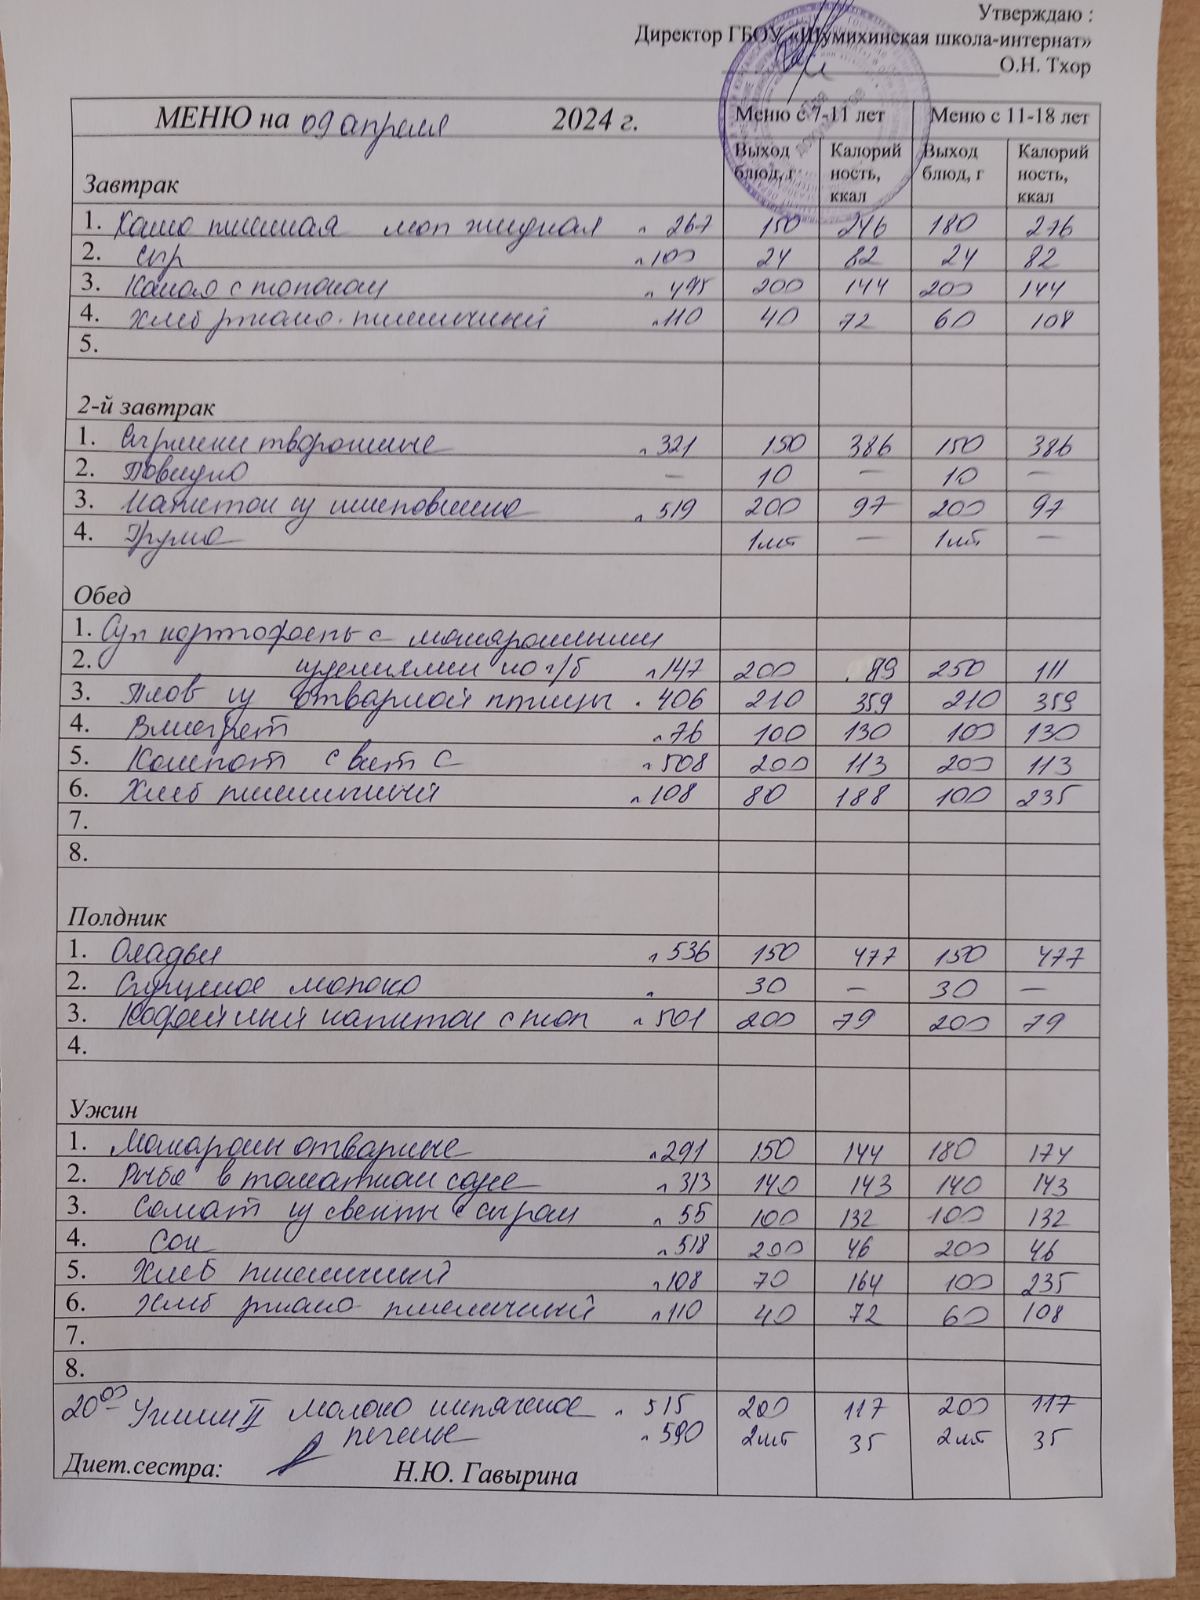 Утверждаю :
Директор ГБОУ «Шумихинская школа-интернат»
О.Н. Тхор
МЕНЮ на 09 апреля 2024 г. Меню с 7-11 лет Меню с 11-18 лет
Завтрак Выход блюд, г Калорий ность, ккал Выход блюд, г Калорий ность, ккал
1. Каша пшенная мол жидкая л 267 150 246 180 276
2. Сыр л 100 24 82 24 82
3. Какао с молоком л 495 200 144 200 144
4. Хлеб ржано-пшеничный л 110 40 72 60 108
5.
2-й завтрак
1. Сырники творожные л 321 150 386 150 386
2. Повидло — 10 — 10 —
3. Напиток из шиповника л 519 200 97 200 97
4. Груша 1шт — 1шт —
Обед
1. Суп картофель с макаронными
2. изделиями по г/б л 147 200 89 250 111
3. Плов из отварной птицы л 406 210 359 210 359
4. Винегрет л 76 100 130 100 130
5. Компот с вит С л 508 200 113 200 113
6. Хлеб пшеничный л 108 80 188 100 235
7.
8.
Полдник
1. Оладьи л 536 150 477 150 477
2. Сгущеное молоко л 30 — 30 —
3. Кофейный напиток с мол л 501 200 79 200 79
4.
Ужин
1. Макароны отварные л 291 150 144 180 174
2. Рыба в томатном соусе л 313 140 143 140 143
3. Салат из свеклы с сыром л 55 100 132 100 132
4. Сок л 518 200 46 200 46
5. Хлеб пшеничный л 108 70 164 100 235
6. Хлеб ржано-пшеничный л 110 40 72 60 108
7.
8.
20 00 Ужин II молоко кипяченое л 515 200 117 200 117
печенье л 590 2шт 35 2шт 35
Диет.сестра: Н.Ю. Гавырина